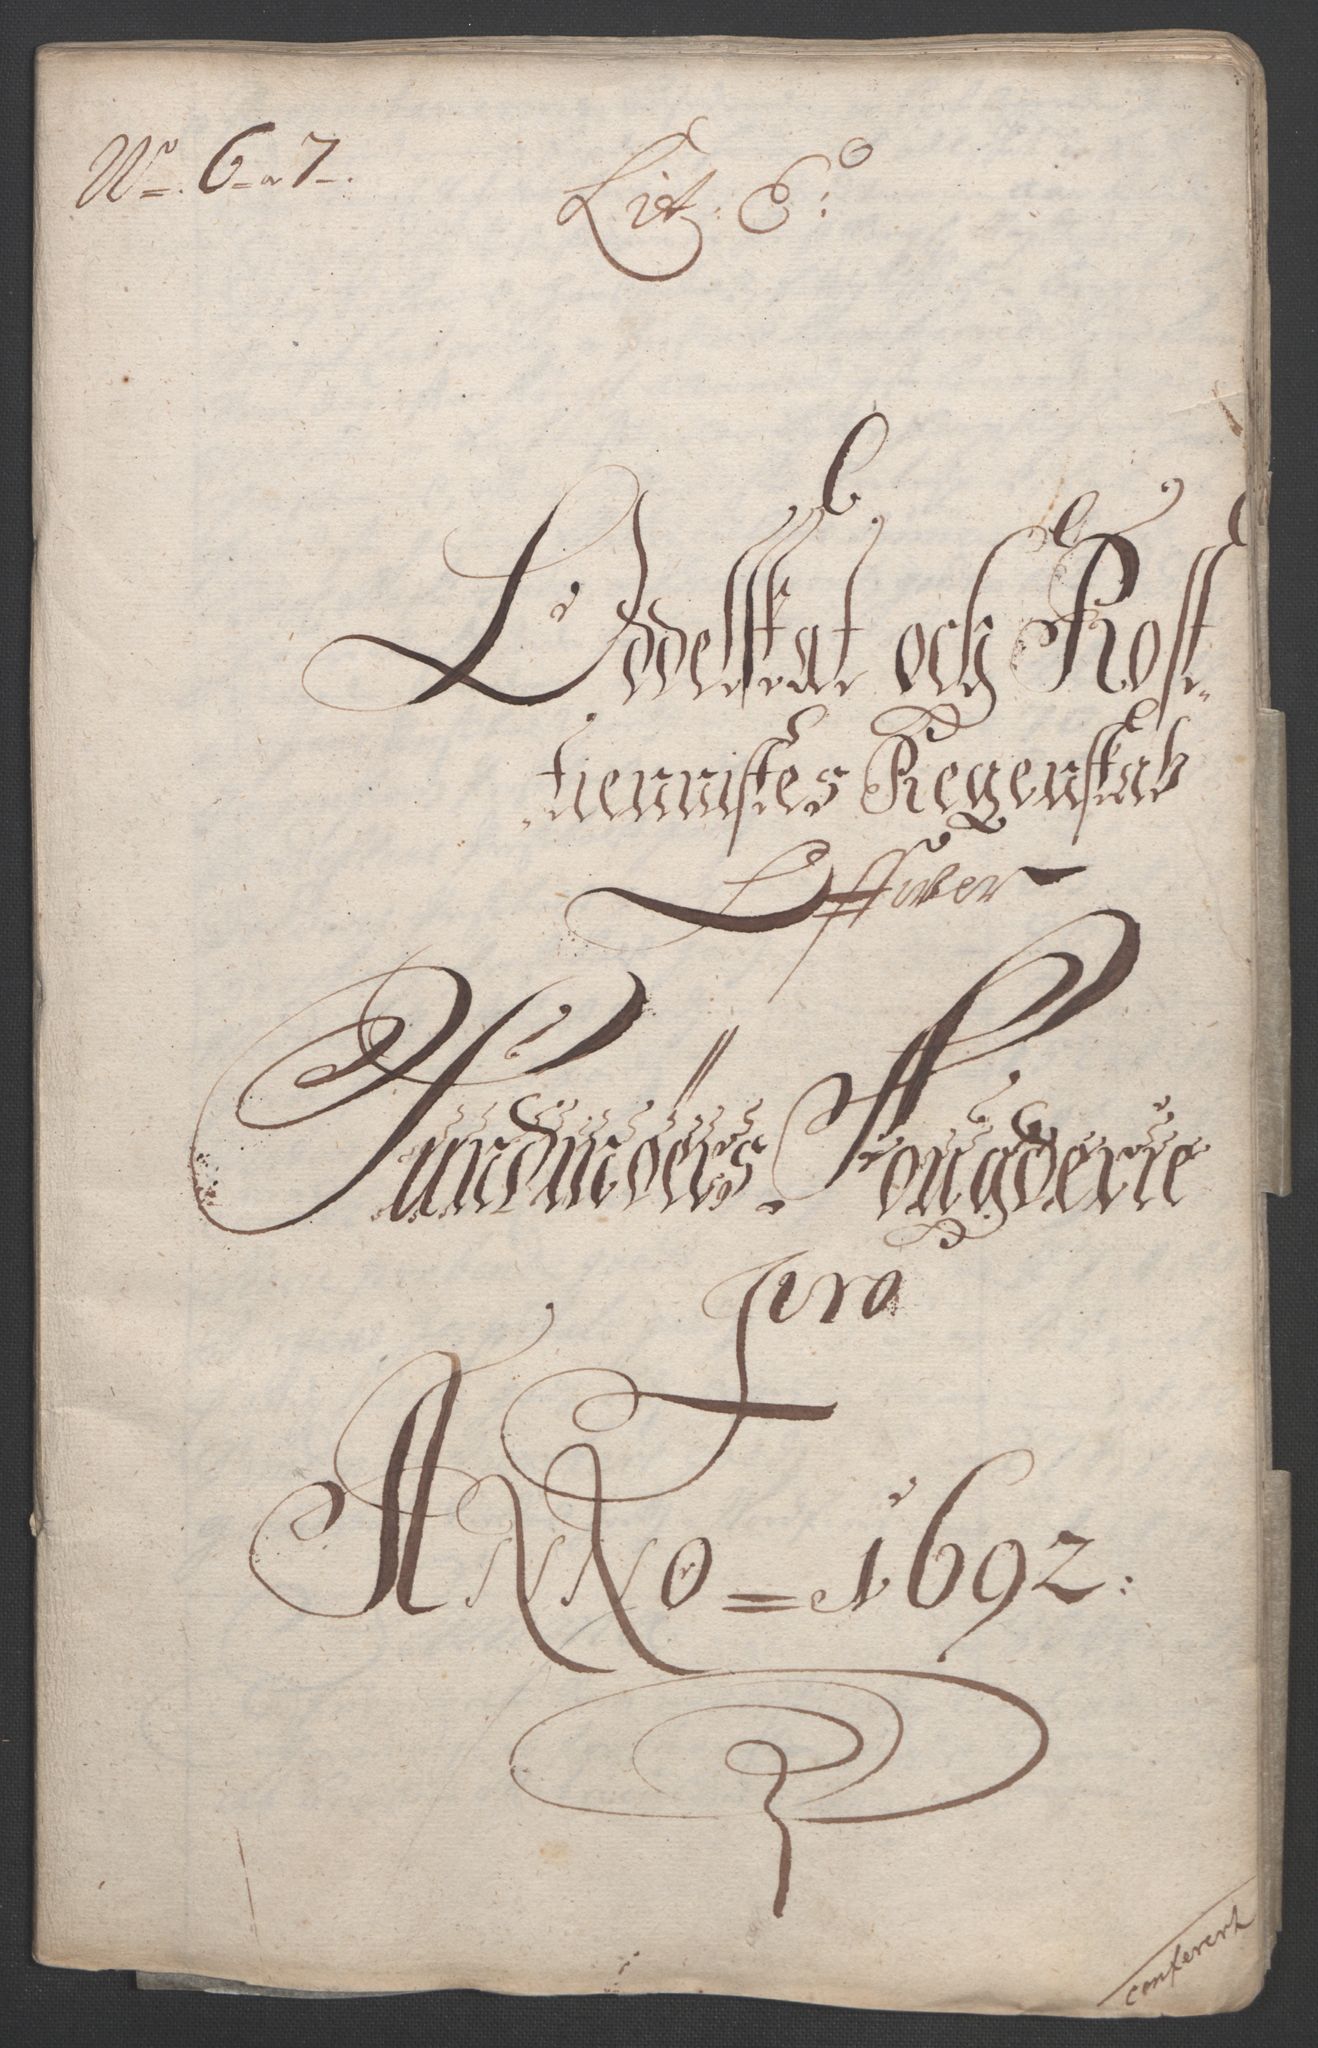 No. 6-a7-.
Lit: E:
Oddelskat och Rost
tiennistes Regenskab
Offver
Sundmörs Fougderie
Pro
ANNo = 1692:
conferert